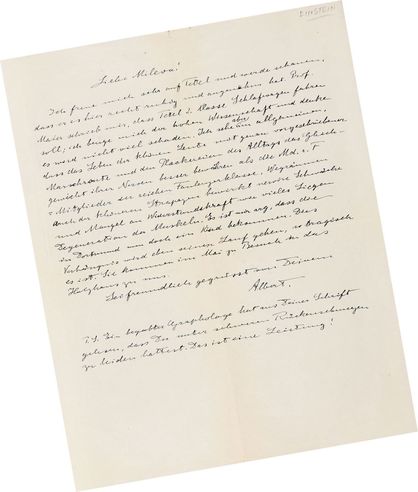 EINSTEIN
Liebe Mileva!
Ich freue mich sehr auf Tetel und werde schauen,
dass er es hier recht ruhig und angenehm hat. Prof.
Maier schrieb mir, dass Tetel 2. Klasse Schlafwagen fahren
soll; ich beuge mich der hohen Wissenschaft und denke
es wird nicht viel schaden. Ich aber allgemein,
dass das Leben der kleinen Leute mit genau vorgeschriebener
Marschroute und den Plackereien des Alltags das Gleich-
gewicht ihrer Nerven besser bewahren als die
Mitglieder der reichen Faulenzerklasse. Wegräumen
auch der kleineren Strapazen bewirkt nervöse Schwäche
und Mangel an Widerstandskraft wie vieles Liegen
Degeneration der Muskeln. Es ist mir arg, dass die
in Dortmund nun doch ein Kind bekommen. Das
Verhängnis wird eben seinen Lauf gehen, so tragisch
es ist. Sie kommen im Mai zu Besuch in das
Holzhaus zu uns.
Sei freundlich gegrüsst von Deinem
Albert.
P.S. Ein begabter Graphologe hat aus Deiner Schrift
gelesen, dass Du unter schweren Rückenschmerzen
zu leiden hattest. Das ist eine Leistung!